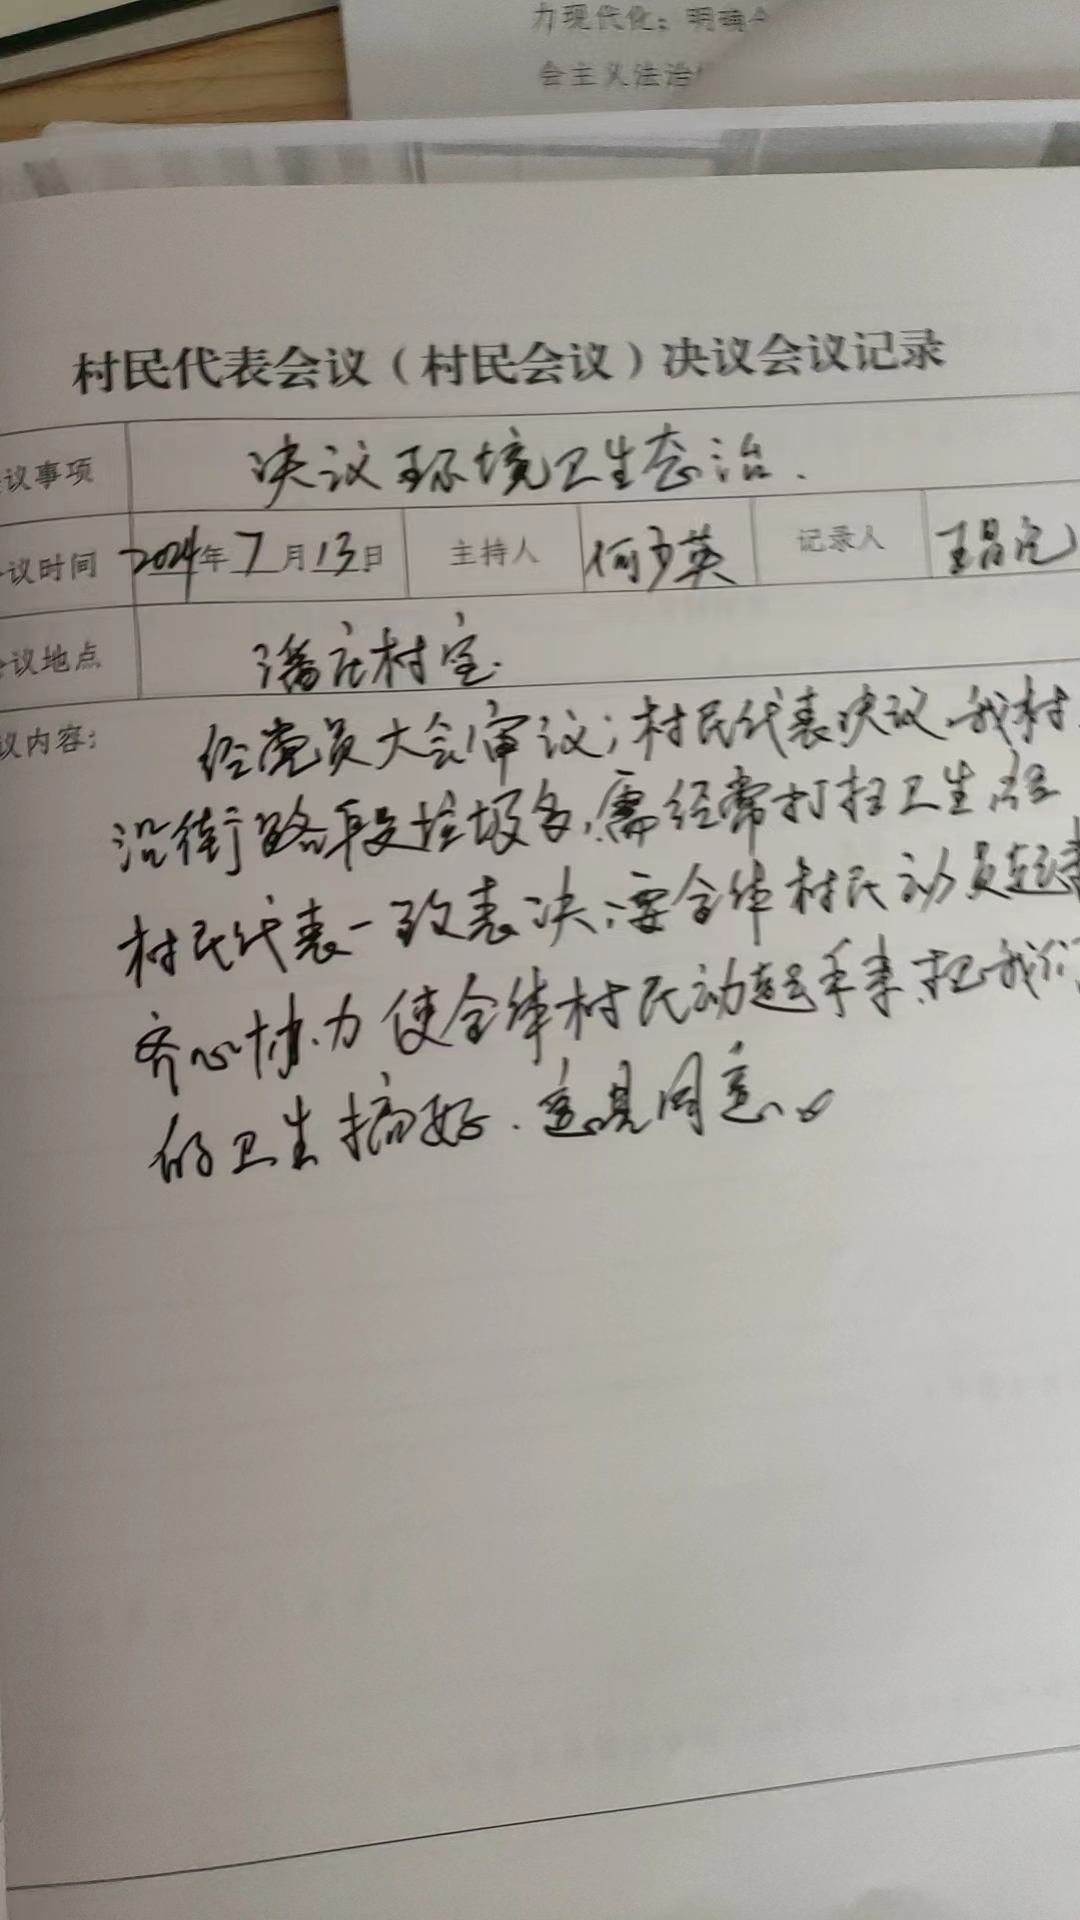 力现代化；明确
会主义法治
村民代表会议（村民会议）决议会议记录
议事项 决议环境卫生态治.
议时间 2024年7月13日 主持人 何少英 记录人 王昌
议地点 潘庄村室.
议内容： 经党员大会审议；村民代表决议,我村
沿街路段垃圾多,需经常打扫卫生,
村民代表一致表决,要全体村民动员起来
齐心协力使全体村民动起手来,把我们
的卫生搞好.意见同意。